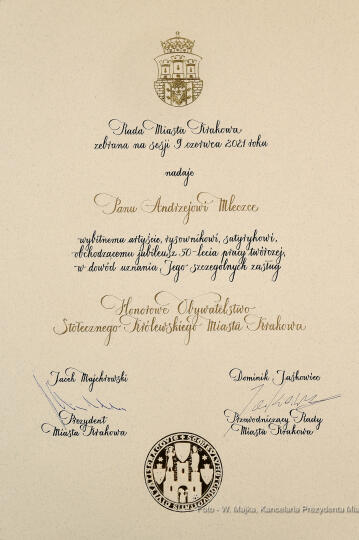 Rada Miasta Krakowa
zebrana na sesji 9 czerwca 2021 roku
nadaje
Panu Andrzejowi Mleczce
wybitnemu artyście, rysownikowi, satyrykowi,
obchodzącemu jubileusz 50-lecia pracy twórczej,
w dowód uznania Jego szczególnych zasług
Honorowe Obywatelstwo
Stołecznego Królewskiego Miasta Krakowa
Jacek Majchrowski
Prezydent
Miasta Krakowa
Dominik Jaśkowiec
Przewodniczący Rady
Miasta Krakowa
Foto - W. Majka, Kancelaria Prezydenta Mia